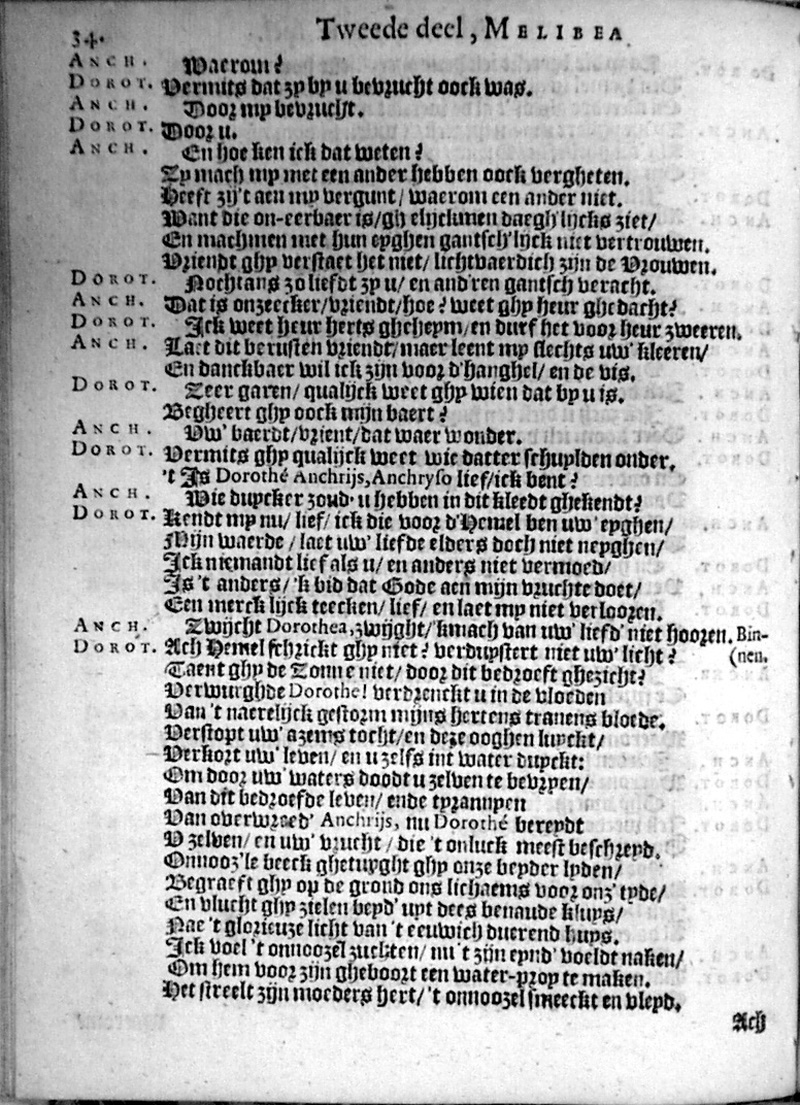 34. Tweede deel, MELIBEA
ANCH. Waerom?
DOROT. Vermits dat zy by u bevrucht oock was.
ANCH. Door my bevrucht.
DOROT. Door u.
ANCH. En hoe ken ick dat weten?
Zy mach my met een ander hebben oock vergheten.
Heeft zij't aen my vergunt/ waerom een ander niet.
Want die on-eerbaer is/gh'elijckmen daegh'lijcks ziet/
En machmen met hun eyghen gantsch'lijck niet vertrouwen.
Vriendt ghy verstaet het niet/ lichtvaerdich zijn de Vrouwen.
DOROT. Nochtans zo liefdt zy u/ en and'ren gantsch veracht.
ANCH. Dat is onzeecker/vriendt/hoe? weet ghy heur ghedacht?
DOROT. Ick weet heur herts gheheym/en durf het voor heur zweeren.
ANCH. Laet dit berusten vriendt/maer leent my slechts uw' kleeren/
En danckbaer wil ick zijn voor d'hanghel/ en de vis.
DOROT. Zeer garen/ qualijck weet ghy wien dat by u is.
Begheert ghy oock mijn baert?
ANCH. Uw' baerdt/vrient/dat waer wonder.
DOROT. Vermits ghy qualijck weet wie datter schuylden onder.
't Is Dorothé Anchrijs, Anchryso lief/ick bent?
ANCH. Wie duycker zoud' u hebben in dit kleedt ghekendt?
DOROT. Kendt my nu/ lief/ ick die voor d'Hemel ben uw' eyghen/
Mijn waerde / laet uw' liefde elders doch niet neyghen/
Ick niemandt lief als u/ en anders niet vermoed/
Is 't anders/ 'k bid dat Gode aen mijn vruchte doet/
Een merck lijck teecken/ lief/ en laet my niet verlooren.
ANCH. Zwijcht Dorothea, zwijght/'kmach van uw' liefd' niet hooren. Bin-
DOROT. Ach Hemel schrickt ghy niet? verduystert niet uw' licht? (nen.
Taent ghy de Zonne niet/ door dit bedroeft ghezicht?
Verwurghde Dorothe! verdrenckt u in de vloeden
Van 't naerelijck gestorm mijns hertens tranens bloede.
Verstopt uw' azems tocht/en deze ooghen luyckt/
Verkort uw' leven/ en u zelfs int water duyckt:
Om door uw' waters doodt u zelven te bevryen/
Van dit bedroefde leven/ ende tyrannyen
Van overwreed' Anchrijs, nu Dorothé bereydt
U zelven/ en uw' vrucht / die 't onluck meest beschreyd.
Onnooz'le beeck ghetuyght ghy onze beyder lyden/
Begraeft ghy op de grond ons lichaems voor onz' tyde/
En vlucht ghy zielen beyd' uyt dees benaude kluys/
Nae 't glorieuze licht van 't eeuwich duerend huys.
Ick voel 't onnoozel zuchten/ nu 't zijn eynd' voeldt naken/
Om hem voor zijn gheboort een water-prop te maken.
Het streelt zijn moeders hert/ 't onnoozel smeeckt en vleyd.
Ach